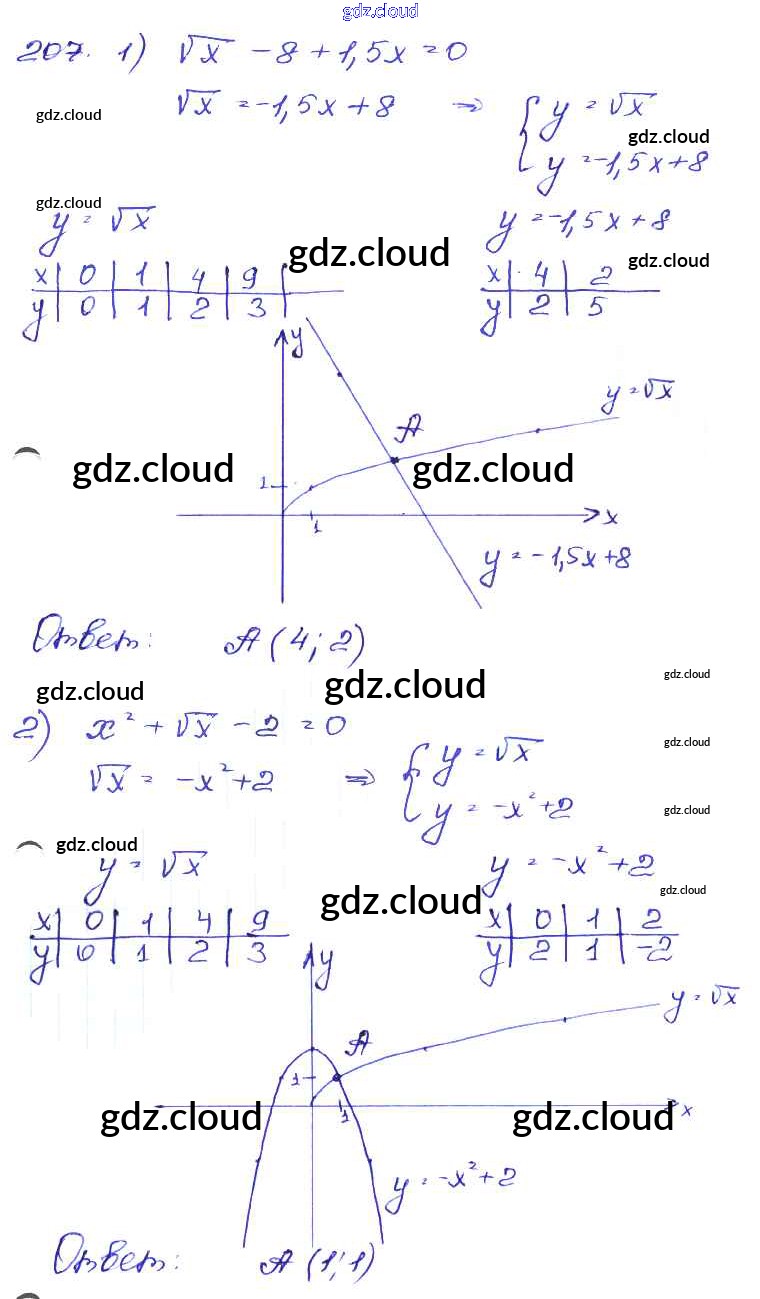 gdz.cloud
207. 1) √x - 8 + 1,5x = 0
√x = -1,5x + 8 ⇒ { y = √x
gdz.cloud
gdz.cloud
y = -1,5x + 8
gdz.cloud
y = √x y = -1,5x + 8
gdz.cloud gdz.cloud
x | 0 | 1 | 4 | 9 | x | 4 | 2
y | 0 | 1 | 2 | 3 | y | 2 | 5
y
y = √x
A
gdz.cloud gdz.cloud
1
x
1
y = -1,5x + 8
Ответ: A (4; 2)
gdz.cloud gdz.cloud gdz.cloud
2) x² + √x - 2 = 0
gdz.cloud
√x = -x² + 2 ⇒ { y = √x
y = -x² + 2
gdz.cloud
gdz.cloud
y = √x y = -x² + 2
gdz.cloud gdz.cloud
x | 0 | 1 | 4 | 9 x | 0 | 1 | 2
y | 0 | 1 | 2 | 3 y | 2 | 1 | -2
y
y = √x
A
1
gdz.cloud gdz.cloud
1 x
y = -x² + 2
Ответ: A (1; 1)